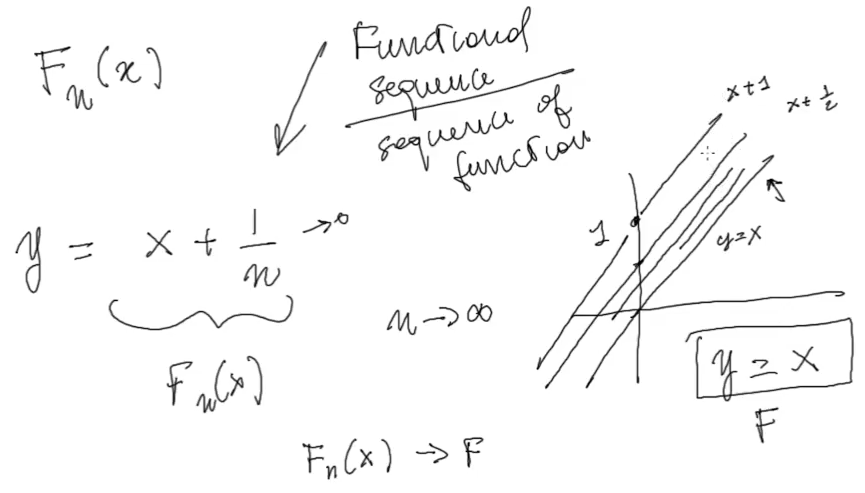 F_n(x)
Functional
sequence
sequence of
function
y = x + 1/n → 0
F_n(x)
n → ∞
F_n(x) → F
x+1
x+1/2
1
y=x
y = x
F